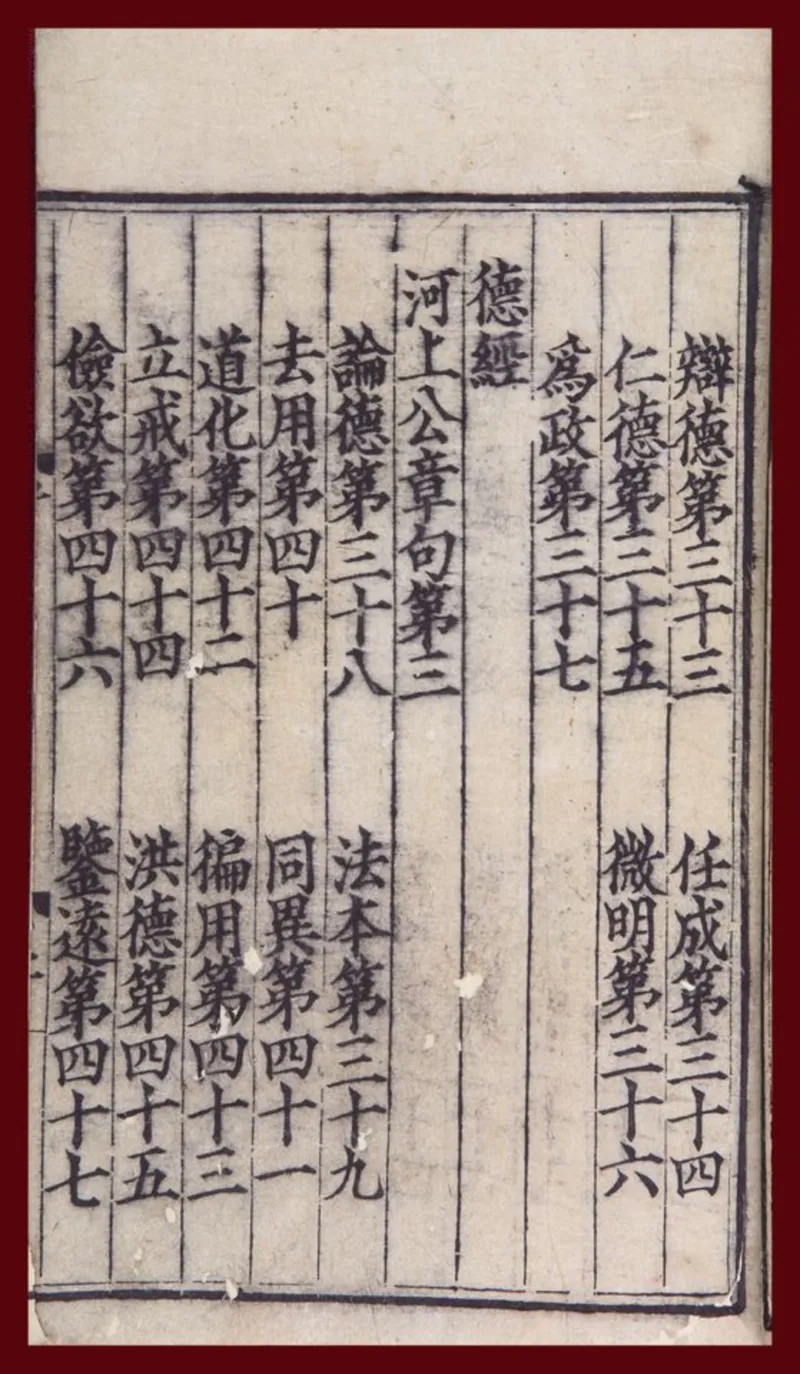 辯德第三十三　任成第三十四
仁德第三十五　微明第三十六
爲政第三十七
德經
河上公章句第三
論德第三十八　法本第三十九
去用第四十　同異第四十一
道化第四十二　徧用第四十三
立戒第四十四　洪德第四十五
儉欲第四十六　鑒遠第四十七